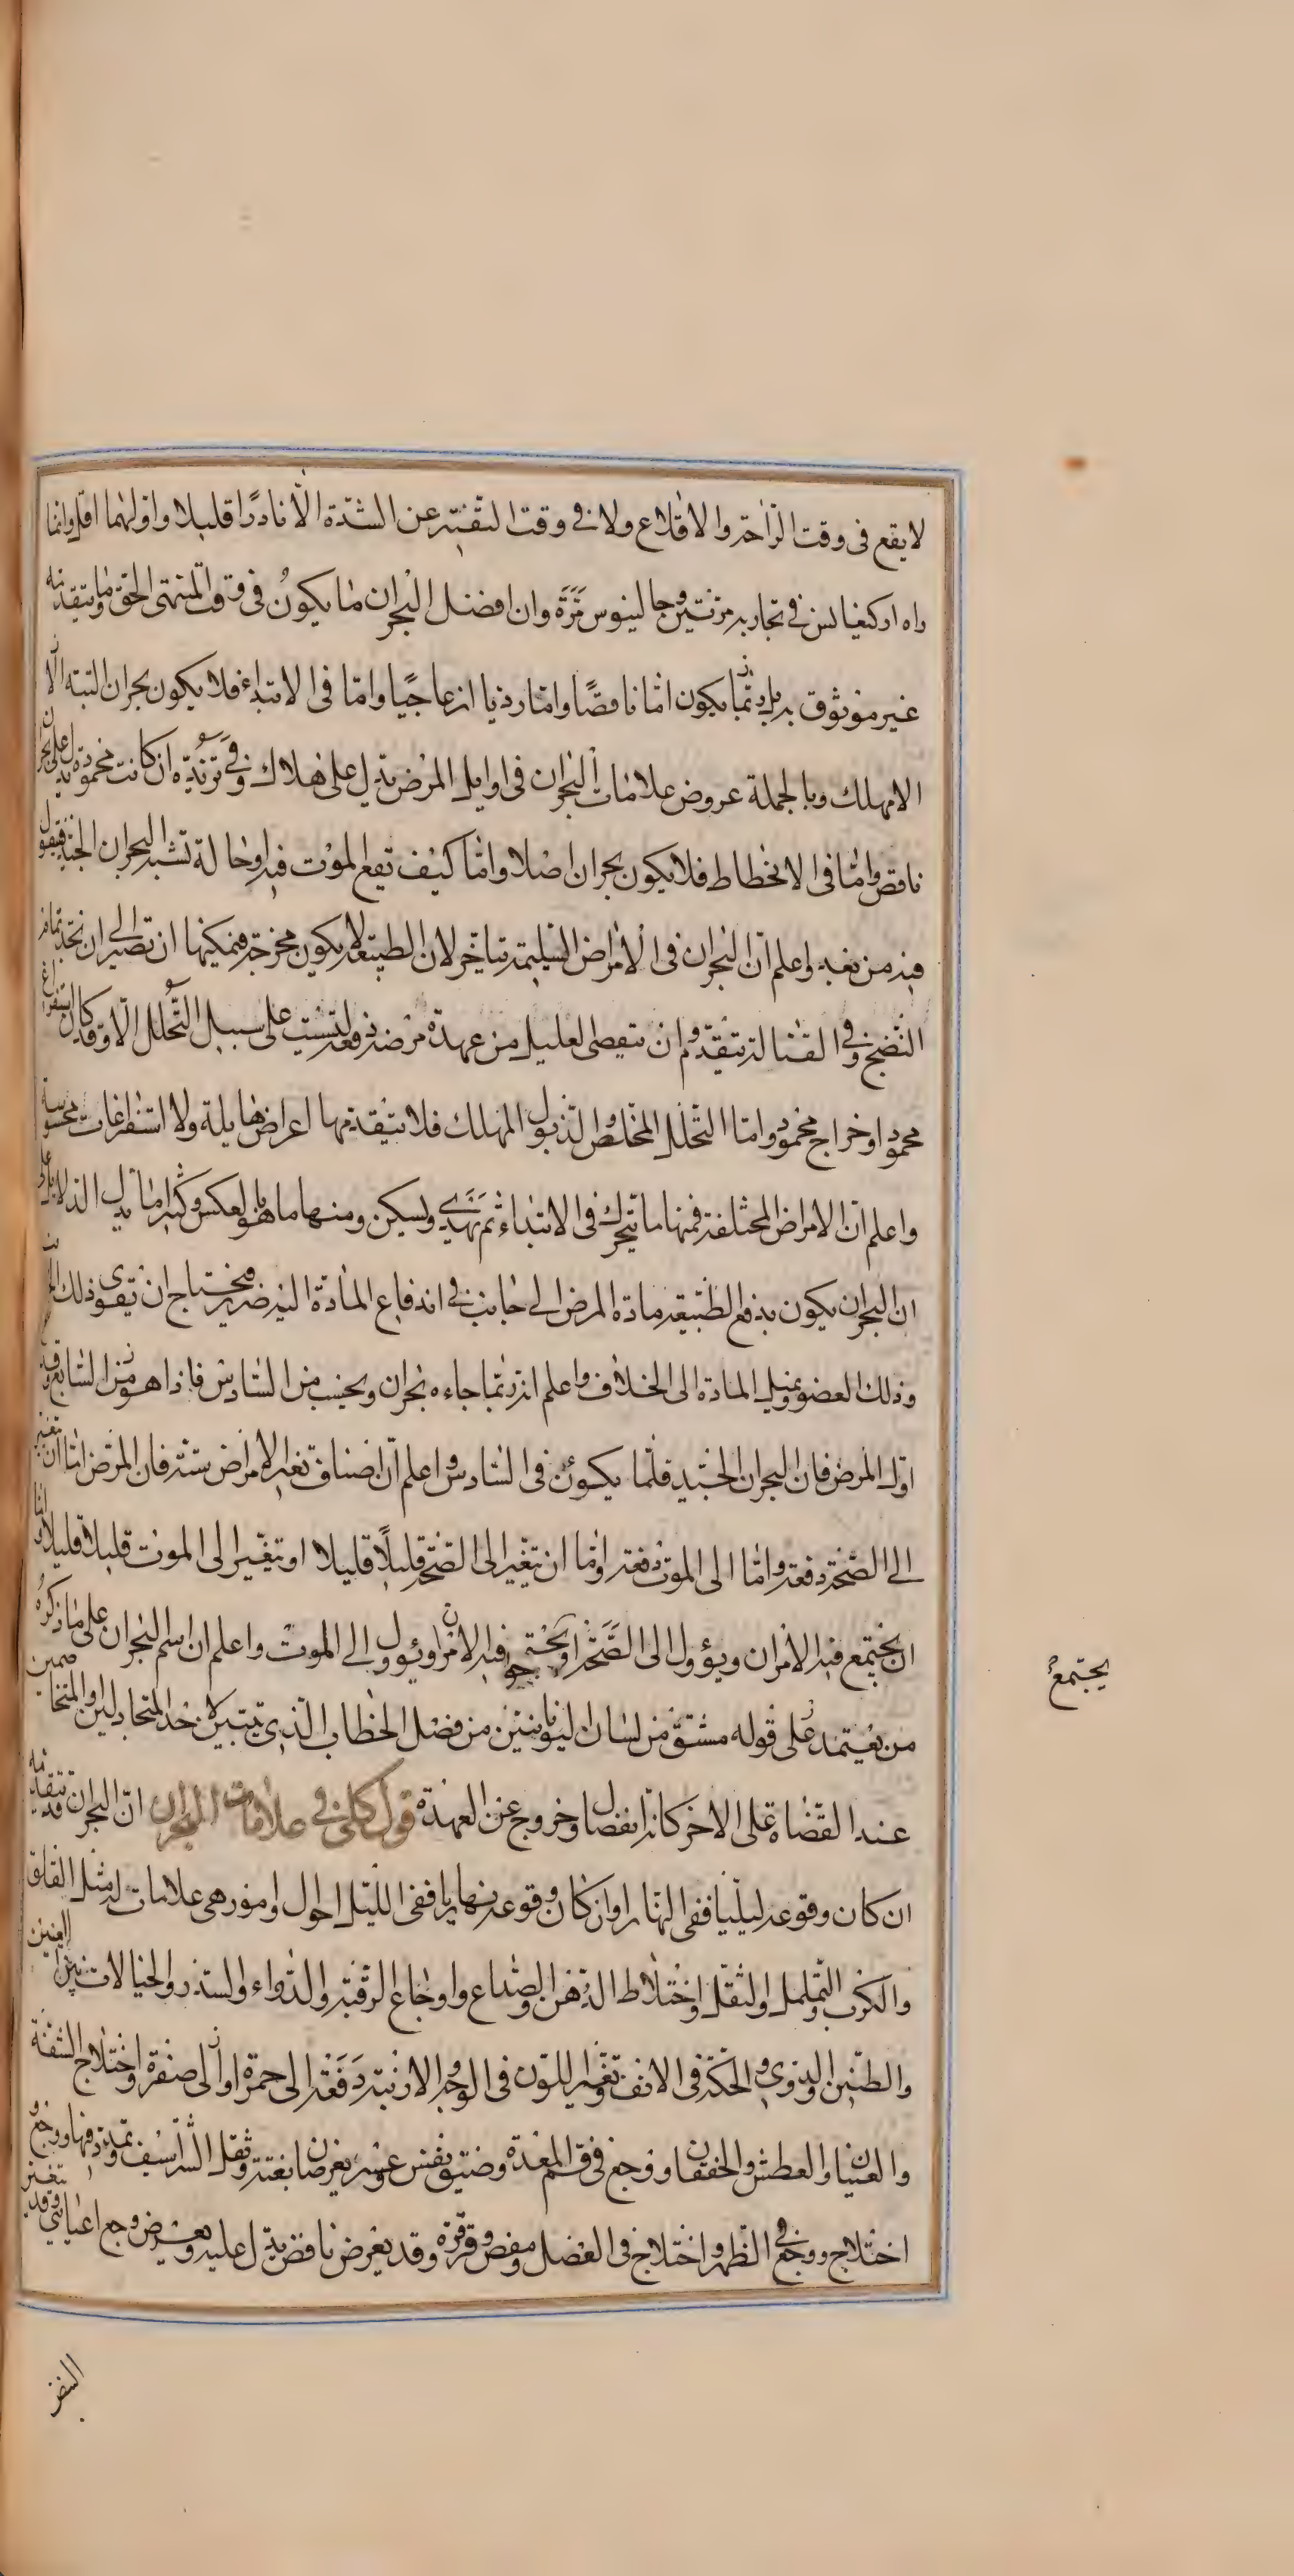 لا يقع فى وقت الراحة والاقلاع ولا فى وقت التفتير عن الشدة الا نادرا قليلا واولهما اقل وانما
راه اركيغانس فى تجاربه مرتين وجالينوس مرة وان افضل البحران ما يكون فى وقت المنتهى الحق وما يتقدمه
غير موثوق به بل ربما يكون اما ناقصا واما رديا ازعاجيا واما فى الابتداء فلا يكون بحران البتة الا
الا مهلك وبالجملة عروض علامات البحران فى اوايل المرض يدل على هلاك وفى تزيده ان كانت محمودة يدل على بحران
ناقص واما فى الانحطاط فلا يكون بحران اصلا واما كيف تقع الموت فيه او حالة تشبه البحران الجيد فنقول
فيه من بعد واعلم ان البحران فى الامراض السليمة يتاخر لان الطبيعة لا يكون محرجة فيمكنها ان تصير الى ان تجد تمام
النضج وفى القتالة يتقدم وان تفصى العليل من عهدة مرضه دفعة ليست على سبيل التحلل الا وقد كان استفراغ
محمود او خراج محمود واما التحلل المخلص والذبول المهلك فلا يتقدمها اعراض هايلة ولا استفراغات محسوسة
واعلم ان الامراض المختلفة فمنها ما يتحرك فى الابتداء ثم يهدى ويسكن ومنها ما هو بالعكس وكثيرا ما يدل الدلايل على
ان البحران يكون بدفع الطبيعة مادة المرض الى جانب فى اندفاع المادة اليه ضرر فيحتاج ان تقوى ذلك الجانب
وذلك العضو ويميل المادة الى الخلاف واعلم انه ربما جاءه بحران ويحسب من السادس فاذا هو من السابع وقد
اول المرض فان البحران الجيد قلما يكون فى السادس واعلم ان اصناف تغير الامراض ستة فان المرض اما ان تغير
الى الصحة دفعة واما الى الموت دفعة واما ان يتغير الى الصحة قليلا قليلا او يتغير الى الموت قليلا قليلا واما
ان يجتمع فيه الامران ويؤول الى الصحة او يجتمع فيه الامران ويؤول الى الموت واعلم ان اسم البحران على ما ذكره
يجتمع
من يعتمد على قوله مشتق من لسان اليونانيين من فصل الخطاب الذى يتبين لاحد المتجادلين او المتخاصمين
عند القضاة على الاخر كانه انفصال وخروج عن العهدة قول كلى فى علامات البحران ان البحران قد يتقدمه
ان كان وقوعه ليليا ففى النهار وان كان وقوعه نهاريا ففى الليل احوال وامور هى علامات له مثل القلق
والكرب والتململ والثقل واختلاط الذهن والصداع واوجاع الرقبة والدواء والسدر والخيالات بين العينين
والطنين والدوى والحكة فى الانف وتغير اللون فى الوجه والارنبة دفعة الى حمرة او الى صفرة واختلاج الشفة
والغثيان والعطش والخفقان ووجع فى فم المعدة وضيق نفس وعسر يعرضان بغتة وثقل الشراسيف وتمدد فيها ووجع و
اختلاج ووجع فى الظهر واختلاج فى العضل ومغص وقرقرة وقد يعرض نافض يدل عليه ويعرض وجع اعيايى وقد تغير
النفض